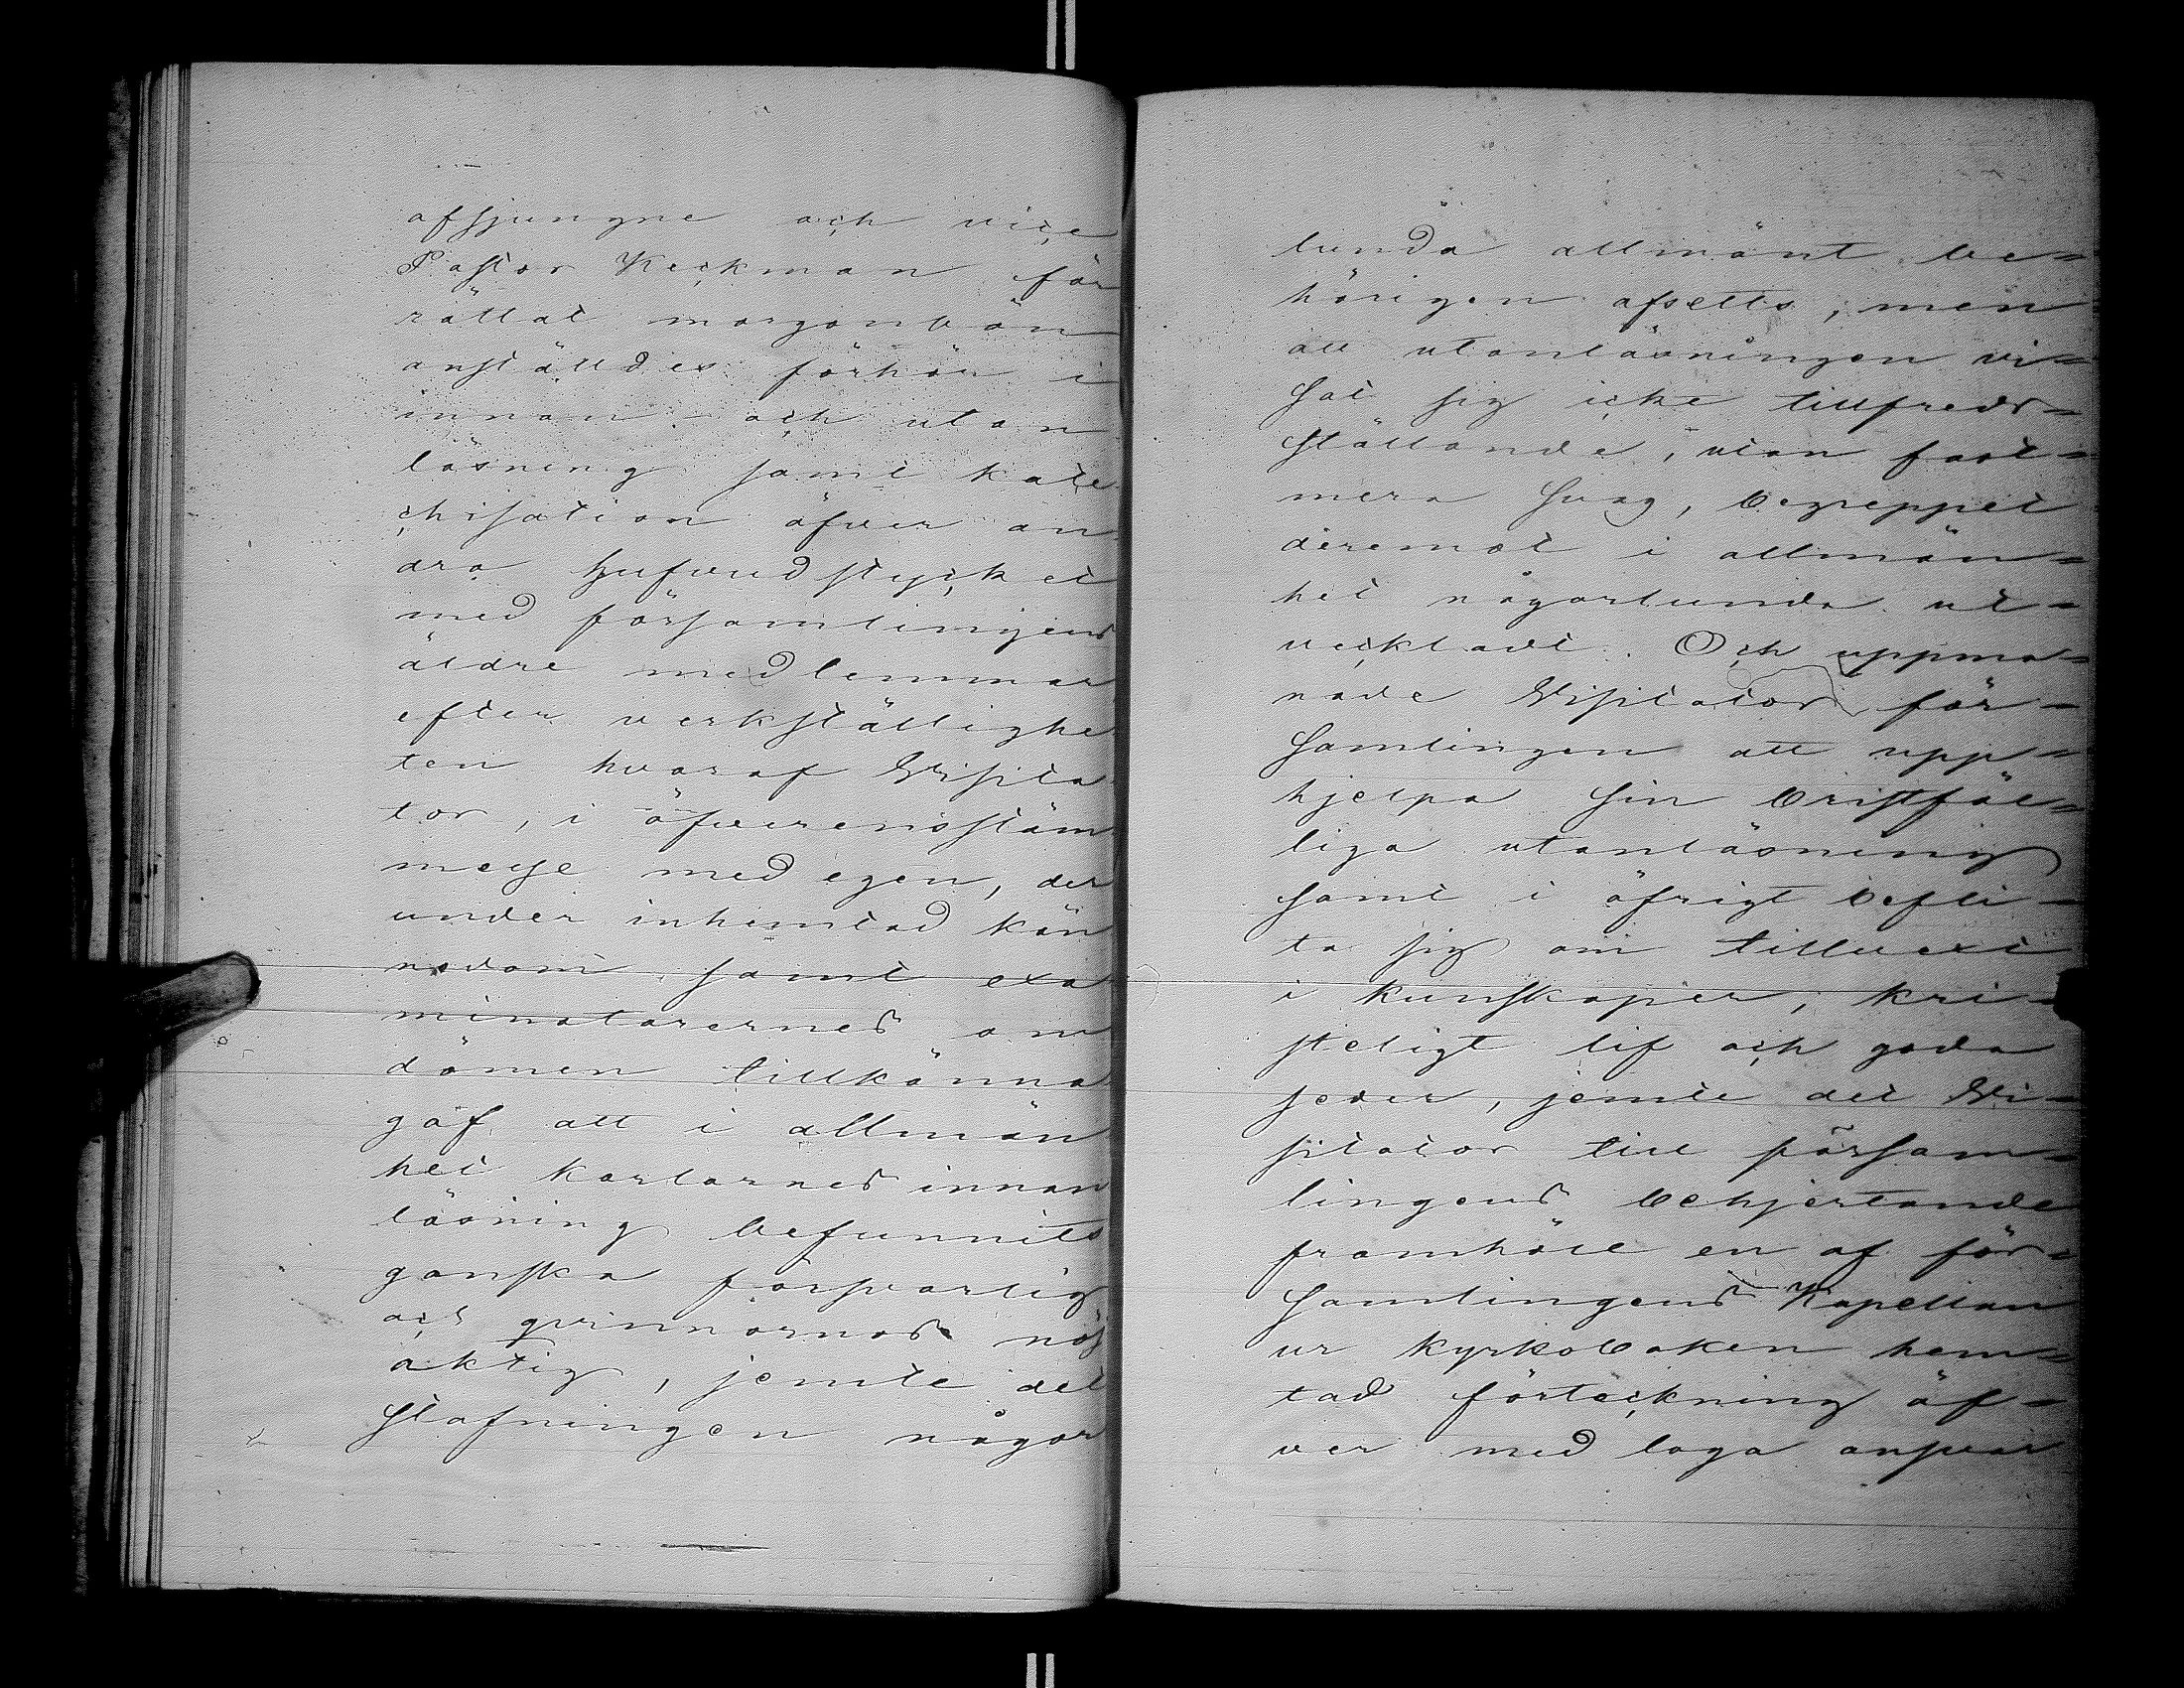 afsjungne och vice
Pastor Keckman för
rättat morgonbön
anställdes förhör i
innan- och utan
läsning samt kate
chisation öfver an
dra hufvudstycket
med församlingens
äldre medlemmar
efter verkställighe
ten hvaraf Visita
tor, i öfverensstäm
melse med egen, der
under inhemtad kän
nedom samt exa
minatorernes om
dömen tillkänna
gaf att i allmän
het karlarnes innan
läsning befunnits
ganska försvarlig
och qvinnornas nöj
aktig, jemte det
stafningen någor
lunda allmänt be-
hörigen afsetts, men
att utanläsningen vi-
sat sig icke tillfreds-
ställande, utan fast-
mera svag, begreppet
deremot i allmän-
het någorlunda ut-
veckladt. Och uppma-
nade Visitator för-
samlingen att upp-
hjelpa sin bristfäl-
liga utanläsning
samt i öfrigt befli-
ta sig om tillvext
i kunskaper, kri-
steligt lif och goda
seder, jemte det Vi-
sitator till försam-
lingens behjertande
framhöll en af för-
samlingens Kapellan
ur kyrkoboken hem-
tad förteckning öf-
ver med laga ansvar